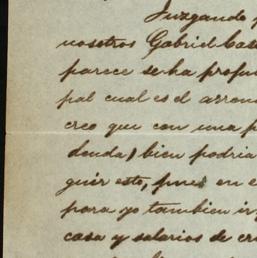 Juzgando p
nosotros Gabriel Cas
parece se ha profun
pal cual es el arren
creo que con una p
deuda) bien podria
guir esto, pues en e
para yo tambien ir
casa y salarios de cr